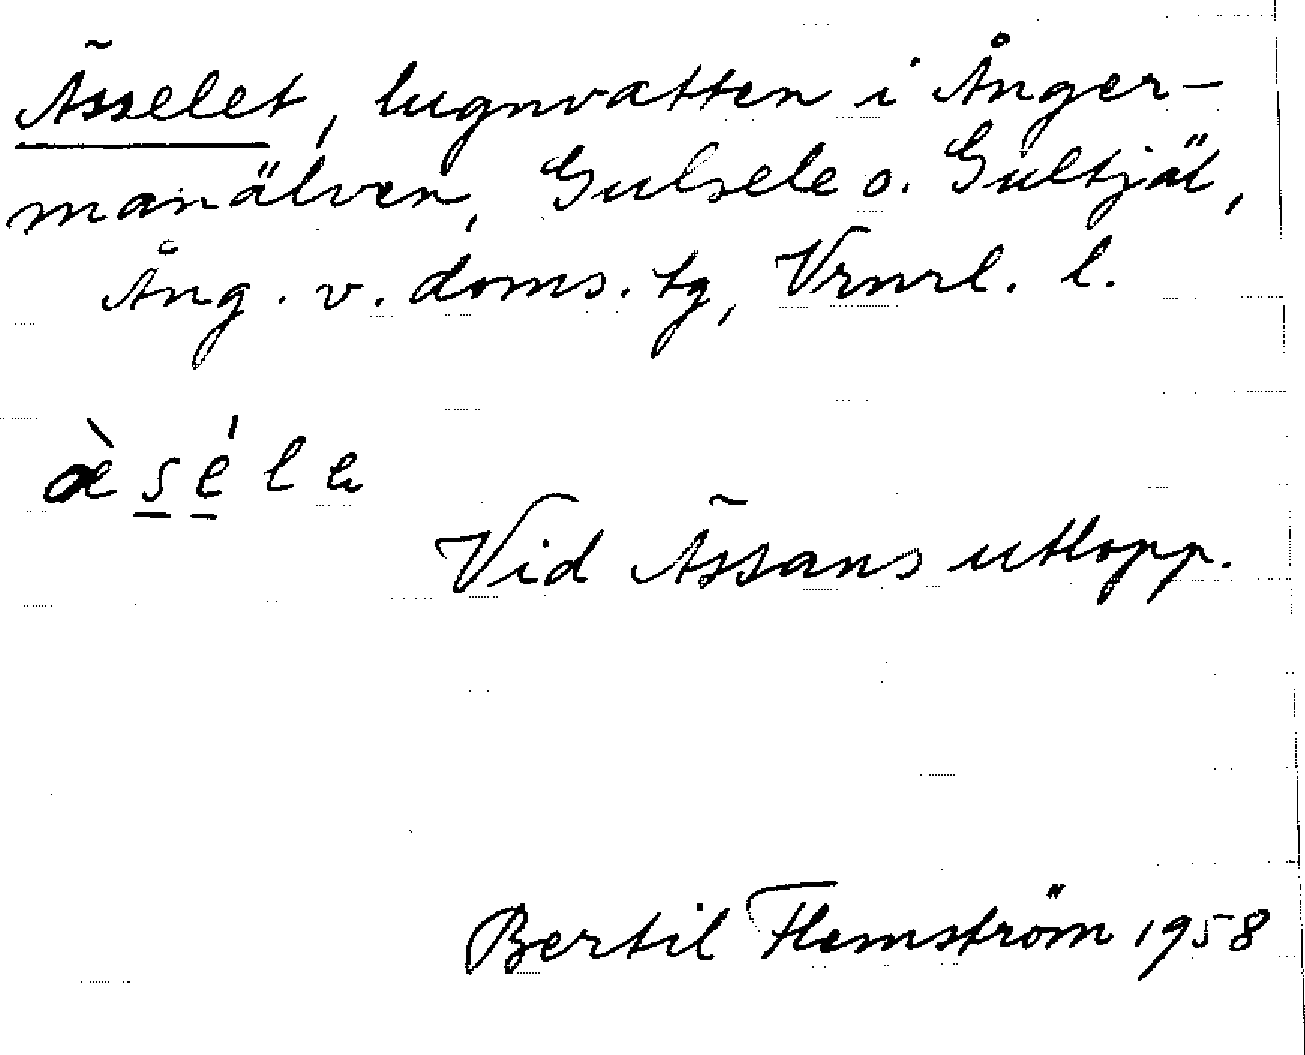 Ässelet, lugnvatten i Ånger-
manälven, Gulsele o. Gultjäl,
Ång. v. doms. tg, Vrnrl. l.
æ̀sélɐ
Vid Ässans utlopp.
Bertil Flemström 1958